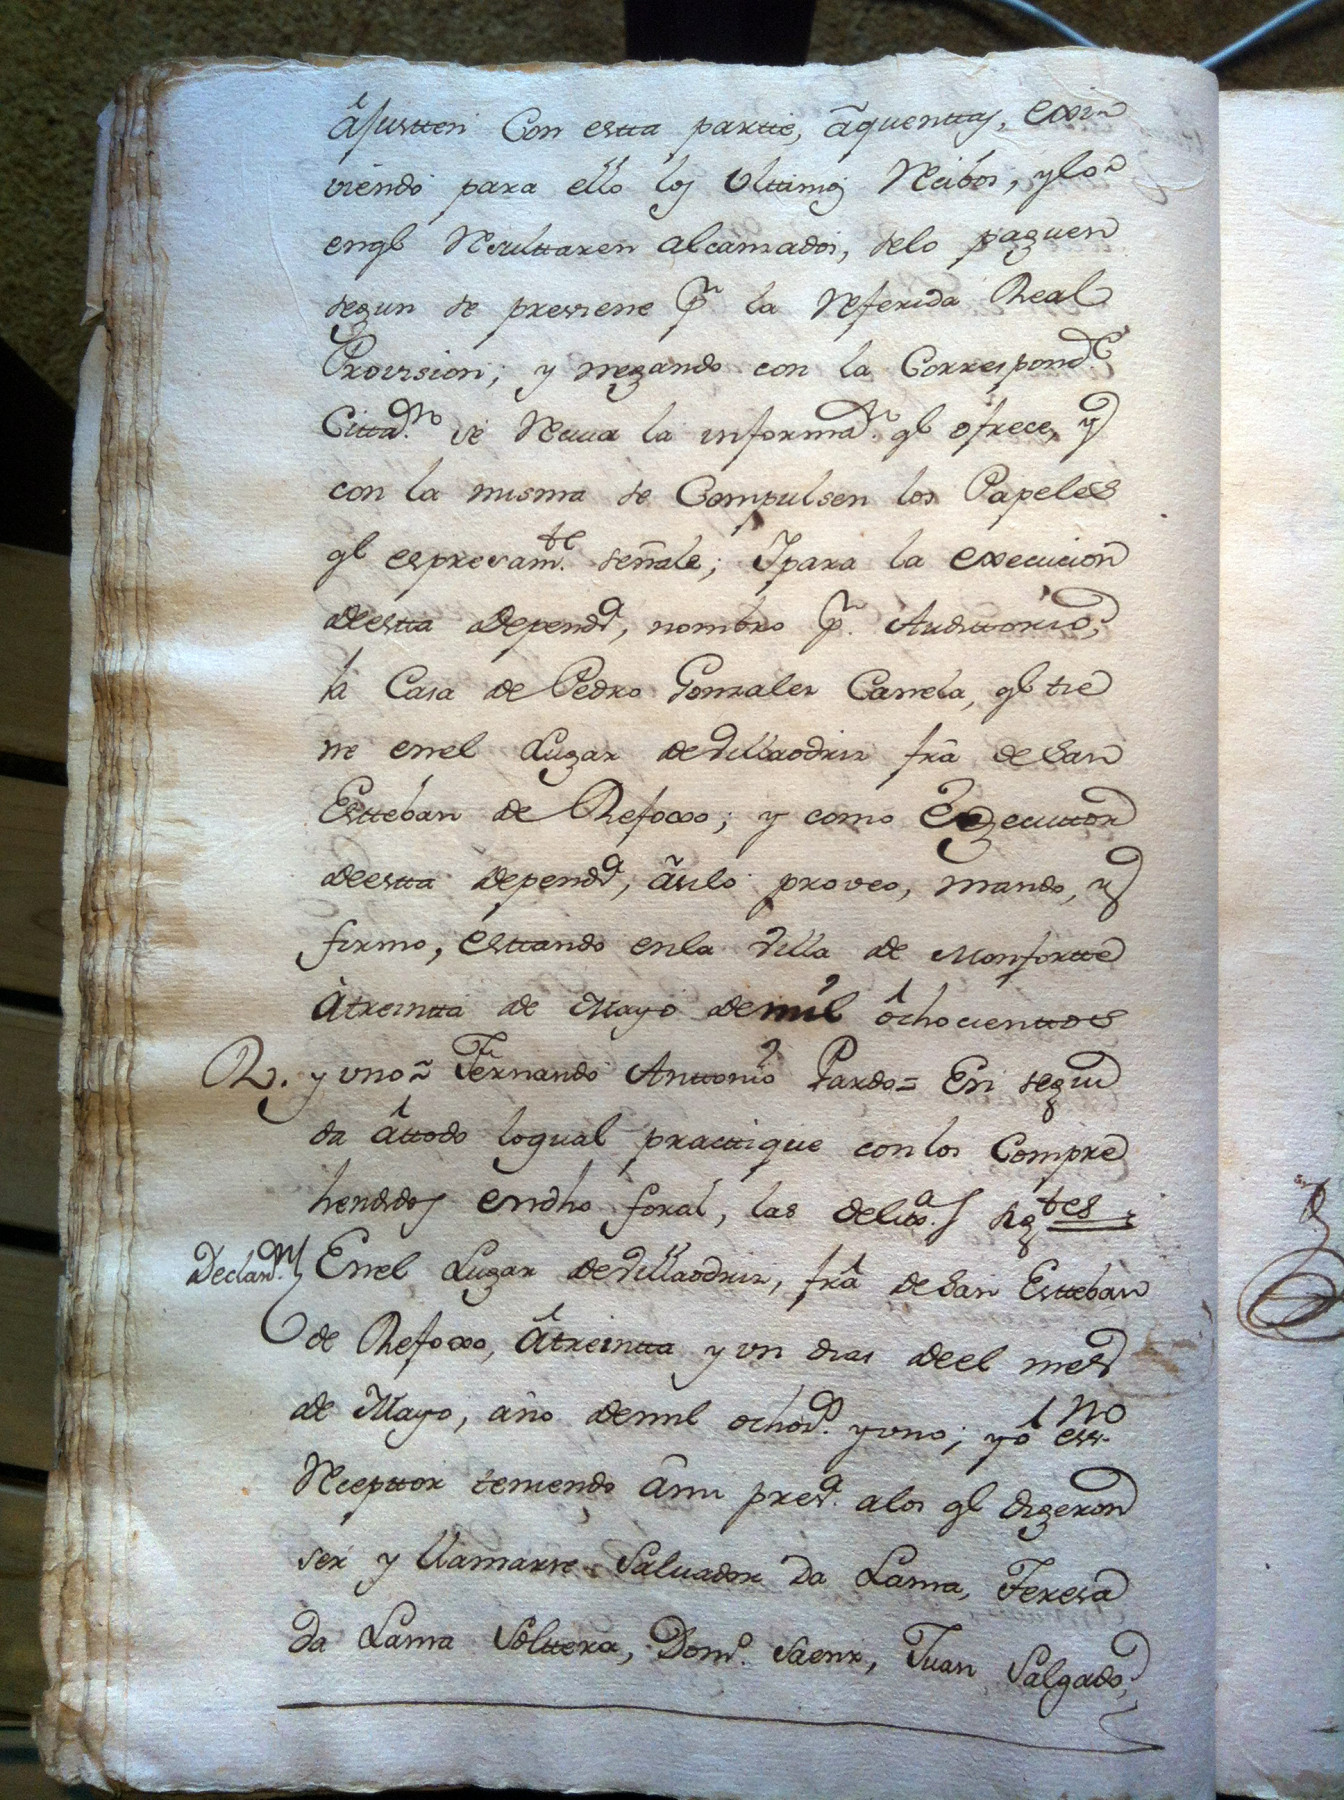 âjustten Con estta partte, âquenttas, exsi-
viendo para ello los Ulttimos Recibos, y los
en ql Resulttaren alcanzados, selo paguen
segun se previene Pr. la Referida Real
Provision; y negando con la Correspondte
Cittadn. se Reciva la informadn. ql ofrece, y
con la misma se Compulsen los Papeles
ql espresamte. señale; Ypara la execucion
deestta dependa, nombro Pr. Audittorio,
la Casa de Pedro Gonzales Canela, ql tie
ne enel Lugar deVillaodriz frâ de San
Estteban de Refoxo; y como Exzecuttor
deestta dependa, âsilo proveo, mando, y
firmo, esttando enla Villa de Monfortte
âtreintta de Mayo demil ôchocienttos
R. y uno = Fernando Anttonio Pardo = En segui
da âttodo loqual practtique con los Compre
hendidos endho foral, las delixas. sigtes =
Declaran. Enel Lugar deVillaodriz, frâ de San Estteban
de Refoxo, âtreintta y un dias deel mes
de Mayo, año demil ochoss. yuno; yô essno.
Receptor teniendo âmi presa. alos ql digeron
ser y llamarse Salvador Da Lama, Teresa
Da Lama Solttera, Domo. Saenz, Juan Salgado,